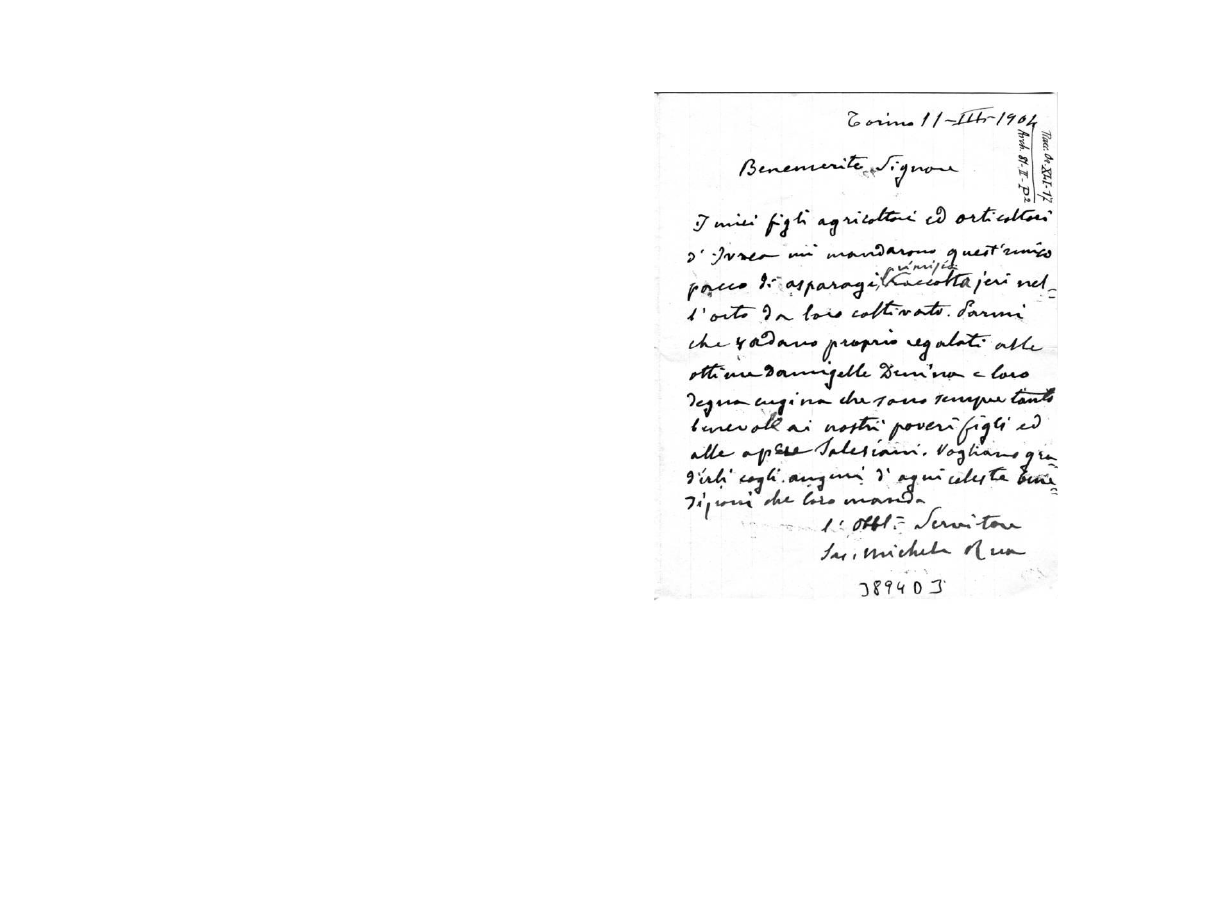 Torino 11-III-1904
Racc. Or. XLI-17
Arch. 81-II-P2
Benemerite Signore
I miei figli agricoltori ed orticoltori
d' Ivrea mi mandarono quest'unico
pacco di asparagi, primizia
raccolta jeri nel-
l'orto da loro coltivato. Parmi
che vadano proprio regalati alle
ottime Damigelle Denina e loro
degna cugina che sono sempre tanto
benevole ai nostri poveri figli ed
alle opere Salesiane. Vogliano gra-
dirli cogli auguri d' ogni celeste bene-
dizioni che loro manda
l' Obbl. Servitore
Sac. Michele Rua
3894 D 3